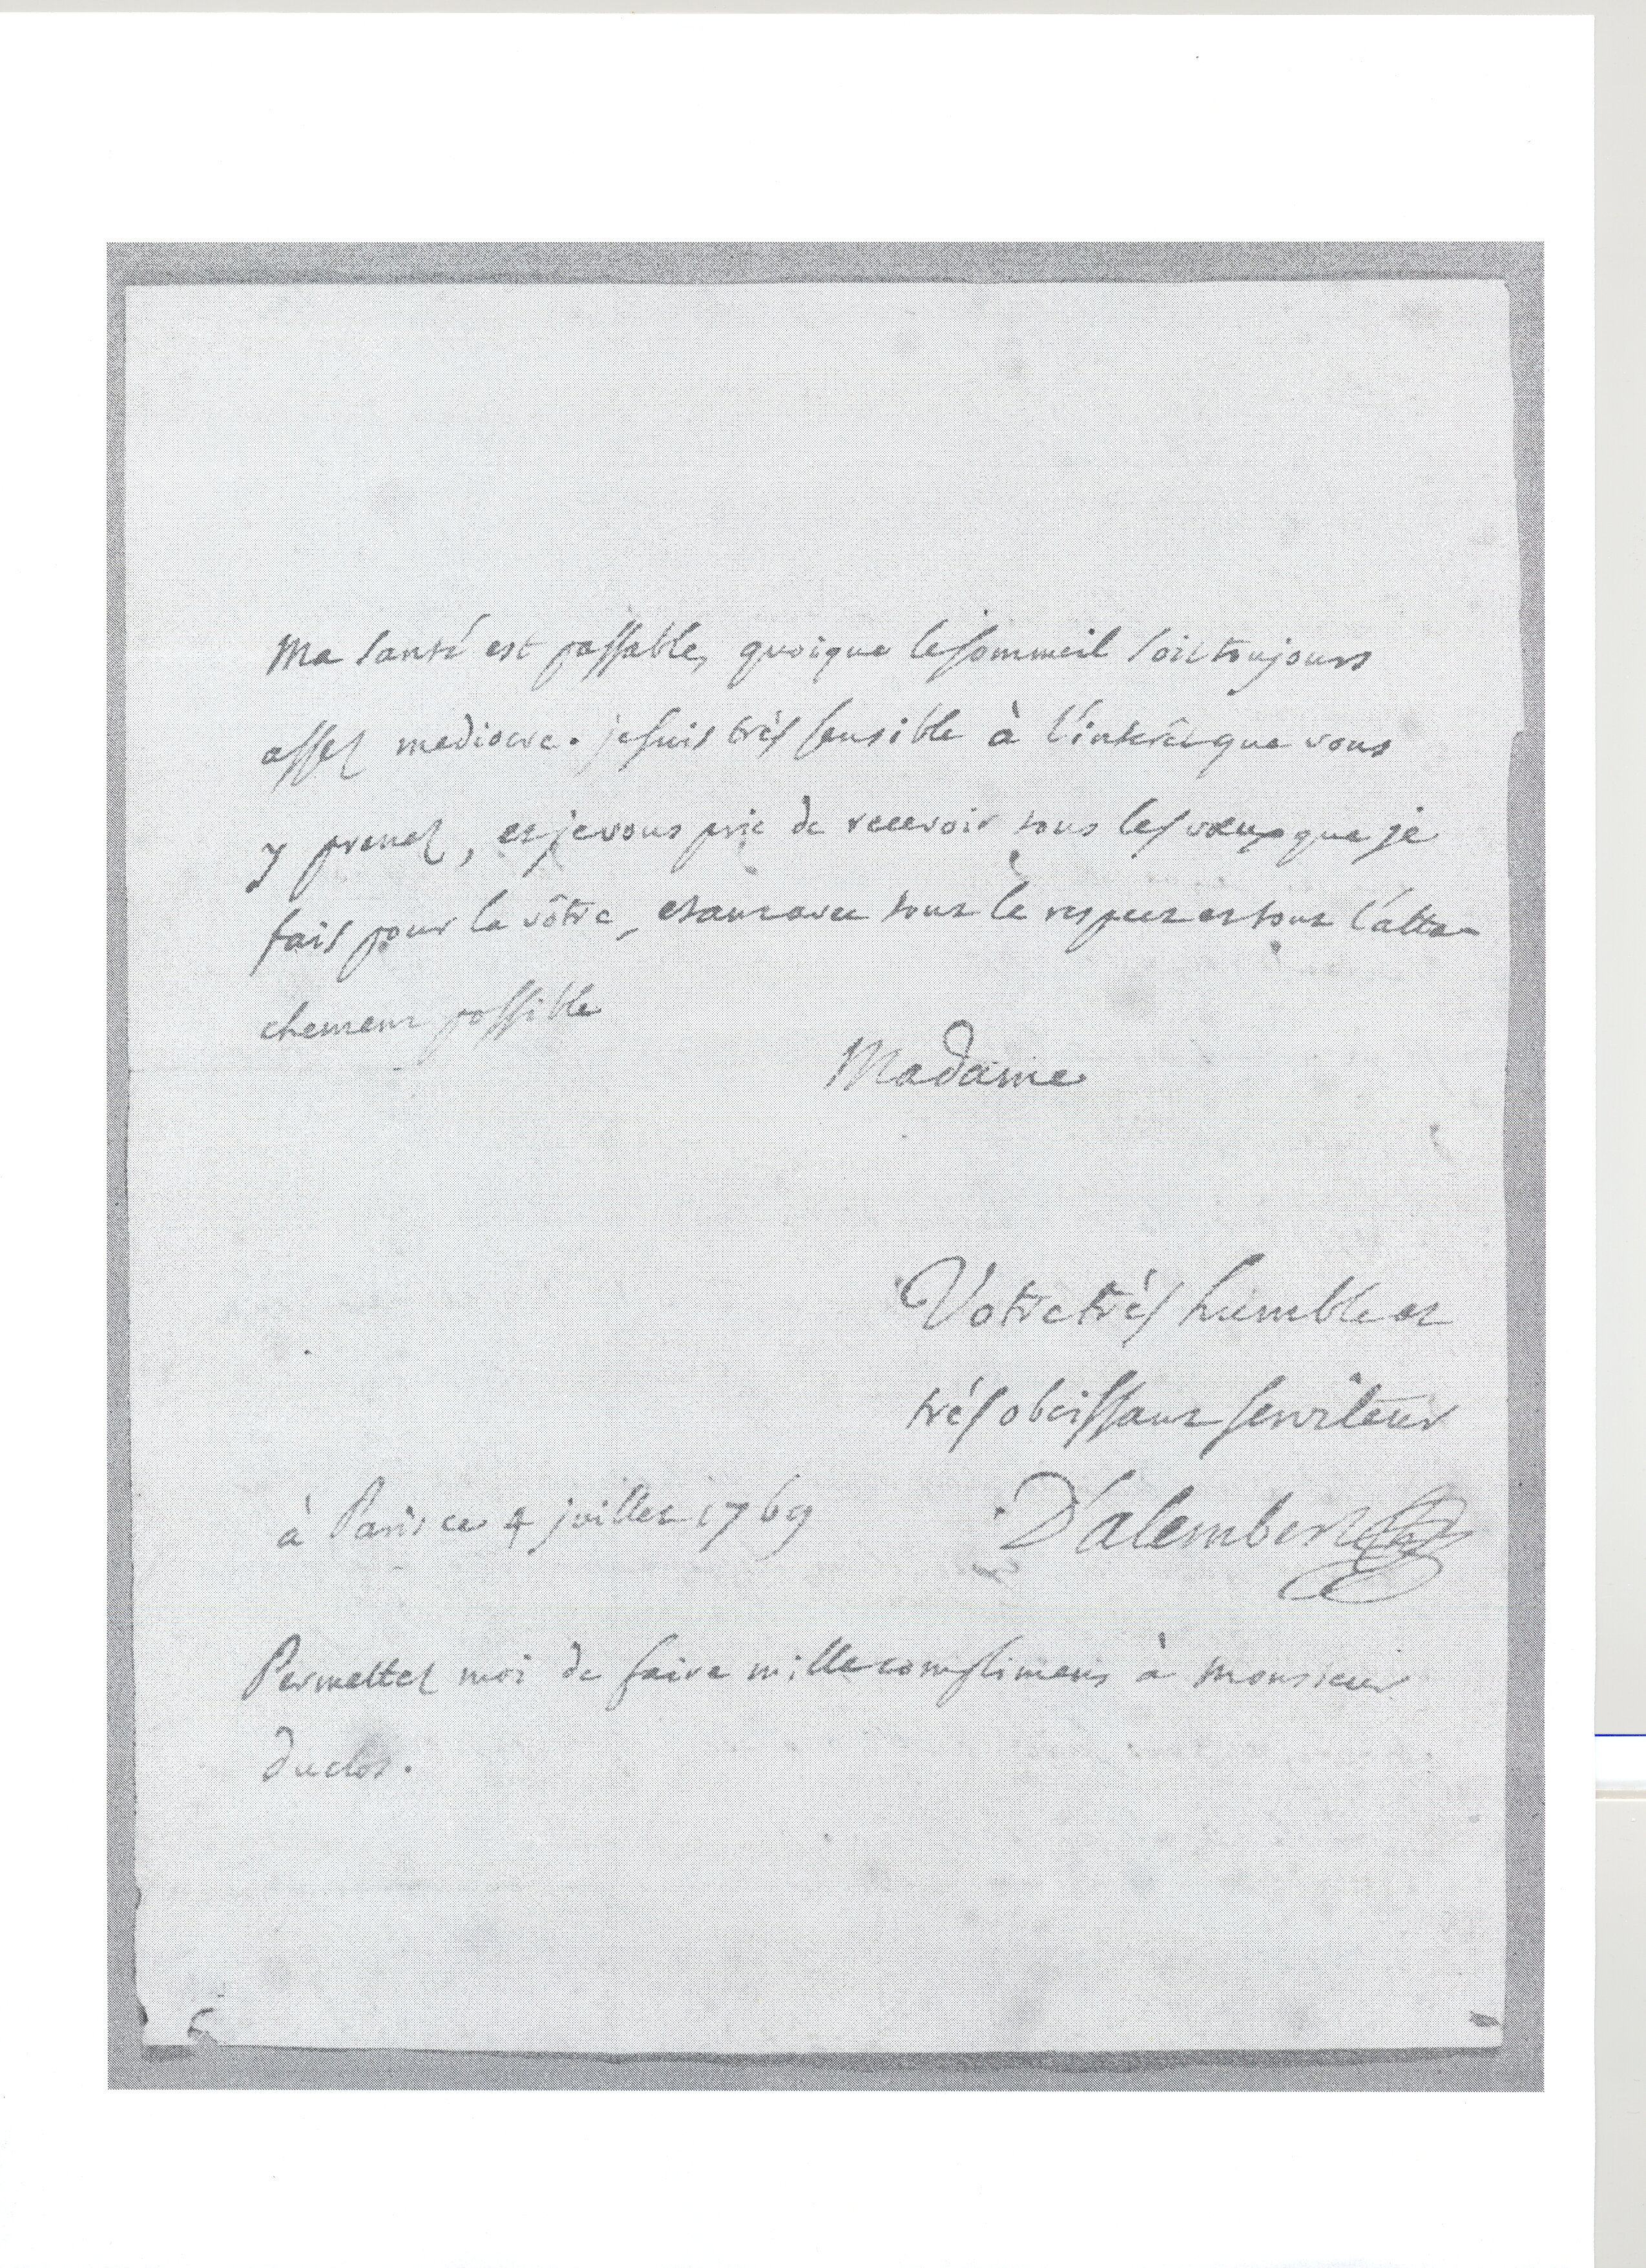 Ma santé est passable, quoique le sommeil soit toujours
assez mediocre. je suis très sensible à l'intérêt que vous
y prenez, et je vous prie de recevoir tous les vœux que je
fais pour la vôtre, étant avec tout le respect et tout l'atta-
chement possible
Madame
Votre très humble et
très obeissant serviteur
à Paris ce 4 juillet 1769
D'alembert
Permettez moi de faire mille complimens à monsieur
duclos.